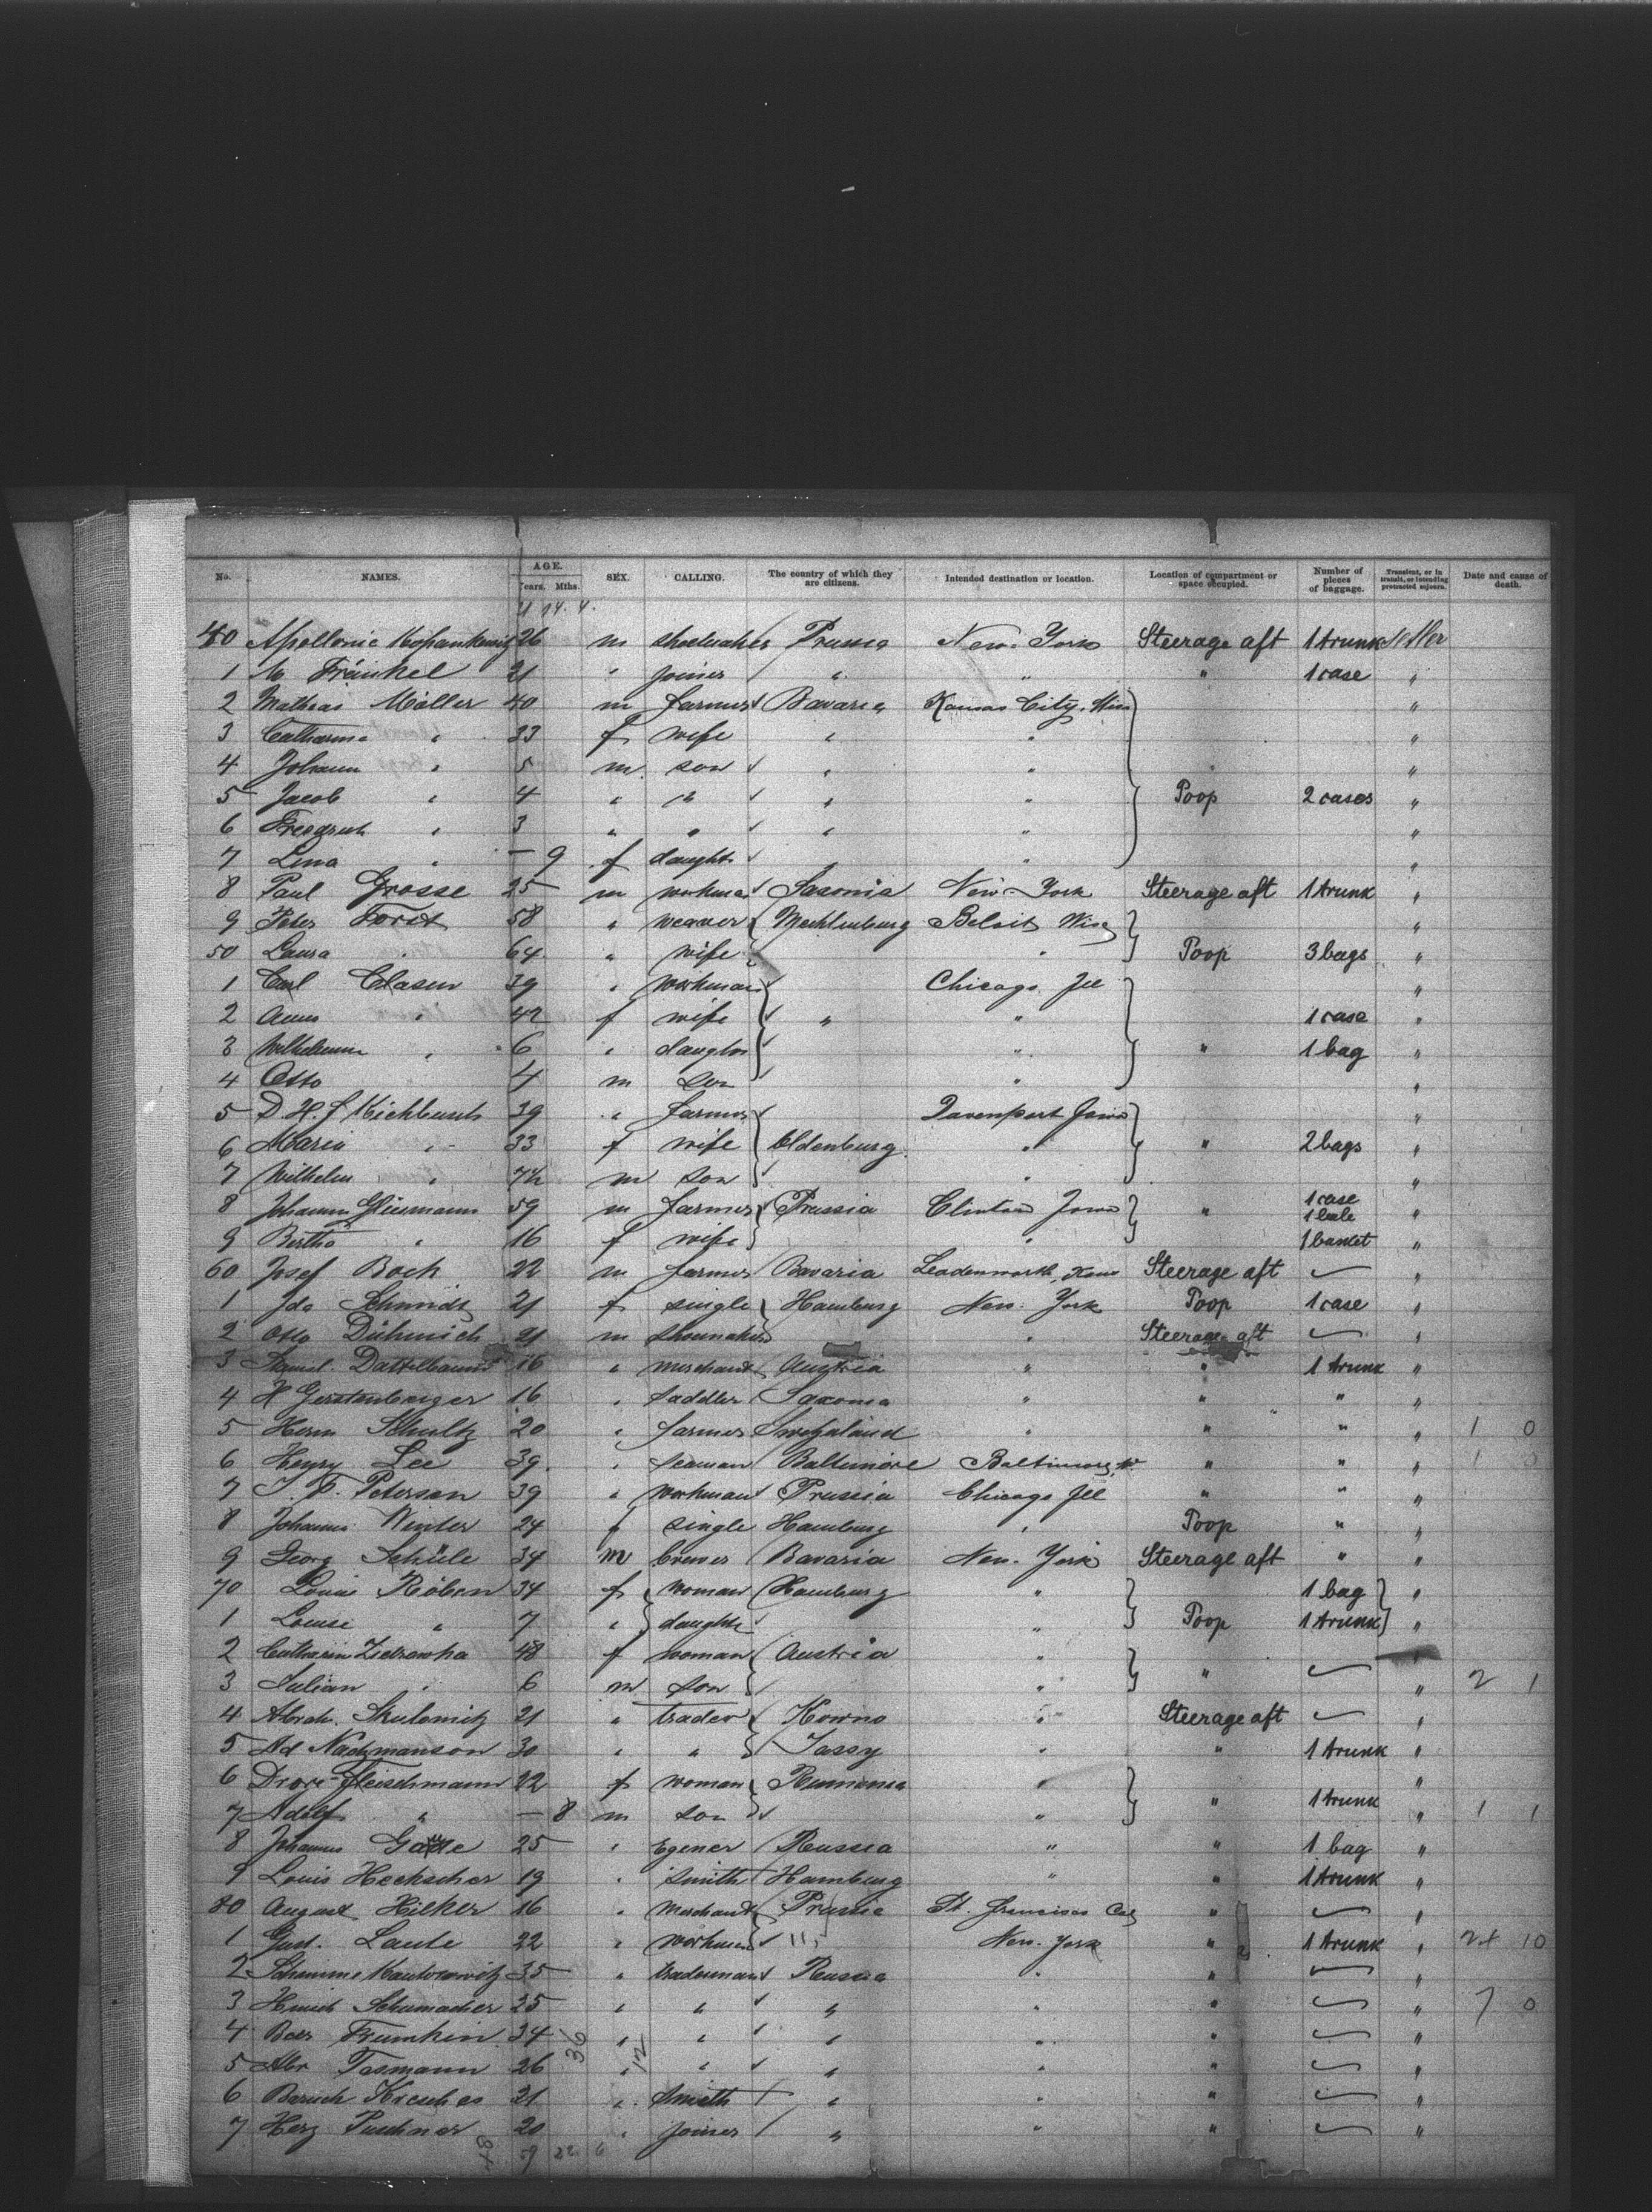 No. NAMES. AGE. Years. Mths. SEX. CALLING. The country of which they are citizens. Intended destination or location. Location of compartment or space occupied. Number of pieces of baggage. Transient, or in transit, or intending protracted sojourn. Date and cause of death.
40 Apollonie 26 m shoemaker Prussia New-York Steerage aft 1 trunk Settler
1 M Fränkel 21 " joiner " " " 1 case "
2 Mathias Möller 40 m farmer Bavaria Kansas City "
3 Catharina " 33 f wife " " "
4 Johann " 5 m son " " "
5 Jacob " 4 " " " " Poop 2 cases "
6 Friedrich " 3 " " " " "
7 Lina " — 9 f daught " " "
8 Paul Grosse 25 m workman Saxonia New-York Steerage aft 1 trunk "
9 Peter Forst 58 " weaver Mecklenburg Beloit Wisc "
50 Laura " 64 " wife " Poop 3 bags "
1 Carl Clasen 39 " workman Chicago Ill "
2 Anna " 42 f wife " " 1 case "
3 Wilhelmine " 6 " daughter " " 1 bag "
4 Otto 4 m son " "
5 D. H. J. Kichbusch 39 " farmer Davenport Iowa "
6 Maria " 33 f wife Oldenburg " " 2 bags "
7 Wilhelm " 7½ m son " "
8 Johann Gliesmann 59 m farmer Prussia Clinton Iowa " 1 case 1 bale "
9 Bertha " 16 f wife " 1 basket "
60 Josef Boch 22 m farmer Bavaria Leadenworth, Kans Steerage aft "
1 Ida Schmidt 21 f single Hamburg New-York Poop 1 case "
2 Otto Dühmich 21 m shoemaker " Steerage aft "
3 Samul. Dattelbaum 16 " merchant Austria " " 1 trunk "
4 H Gerstenberger 16 " saddler Saxonia " " " "
5 Herm Schultz 20 " farmer " " " " 1 0
6 Henry Lee 39 " seaman Baltimore Baltimore " " " 1 0
7 J. F. Peterson 39 " workman Prussia Chicago Ill " " "
8 Johanna Winter 24 f single Hamburg " Poop " "
9 Georg Schüle 34 m brewer Bavaria New-York Steerage aft " "
70 Louise Röben 34 f woman Hamburg " 1 bag "
1 Louise " 7 " daughter " Poop 1 trunk "
2 Catharina 48 f woman Austria " " "
3 Julian " 6 m son " " 2 1
4 Abrah. Skulowitz 21 " trader Kowno " Steerage aft "
5 Ad Nachmanson 30 " " Jassy " " 1 trunk "
6 Fleischmann 22 f woman Rumania " "
7 Adolf " — 8 m son " " 1 trunk " 1 1
8 Johannes 25 " Russia " " 1 bag "
9 Louis Heckscher 19 " smith Hamburg " " 1 trunk "
80 August Hilker 16 " merchant Prussia St. Francisco Cal " "
1 Gust. Laule 22 " workman " New-York " 1 trunk " 24 10
2 35 " tradesman Russia " " "
3 Schumacher 25 " " " " " " 7 0
4 Beer Frumkin 34 " " " " " "
5 Abr Tasmann 26 " " " " " "
6 Baruch 21 " smith " " " "
7 Herz 20 " joiner " " " "
36 12
48